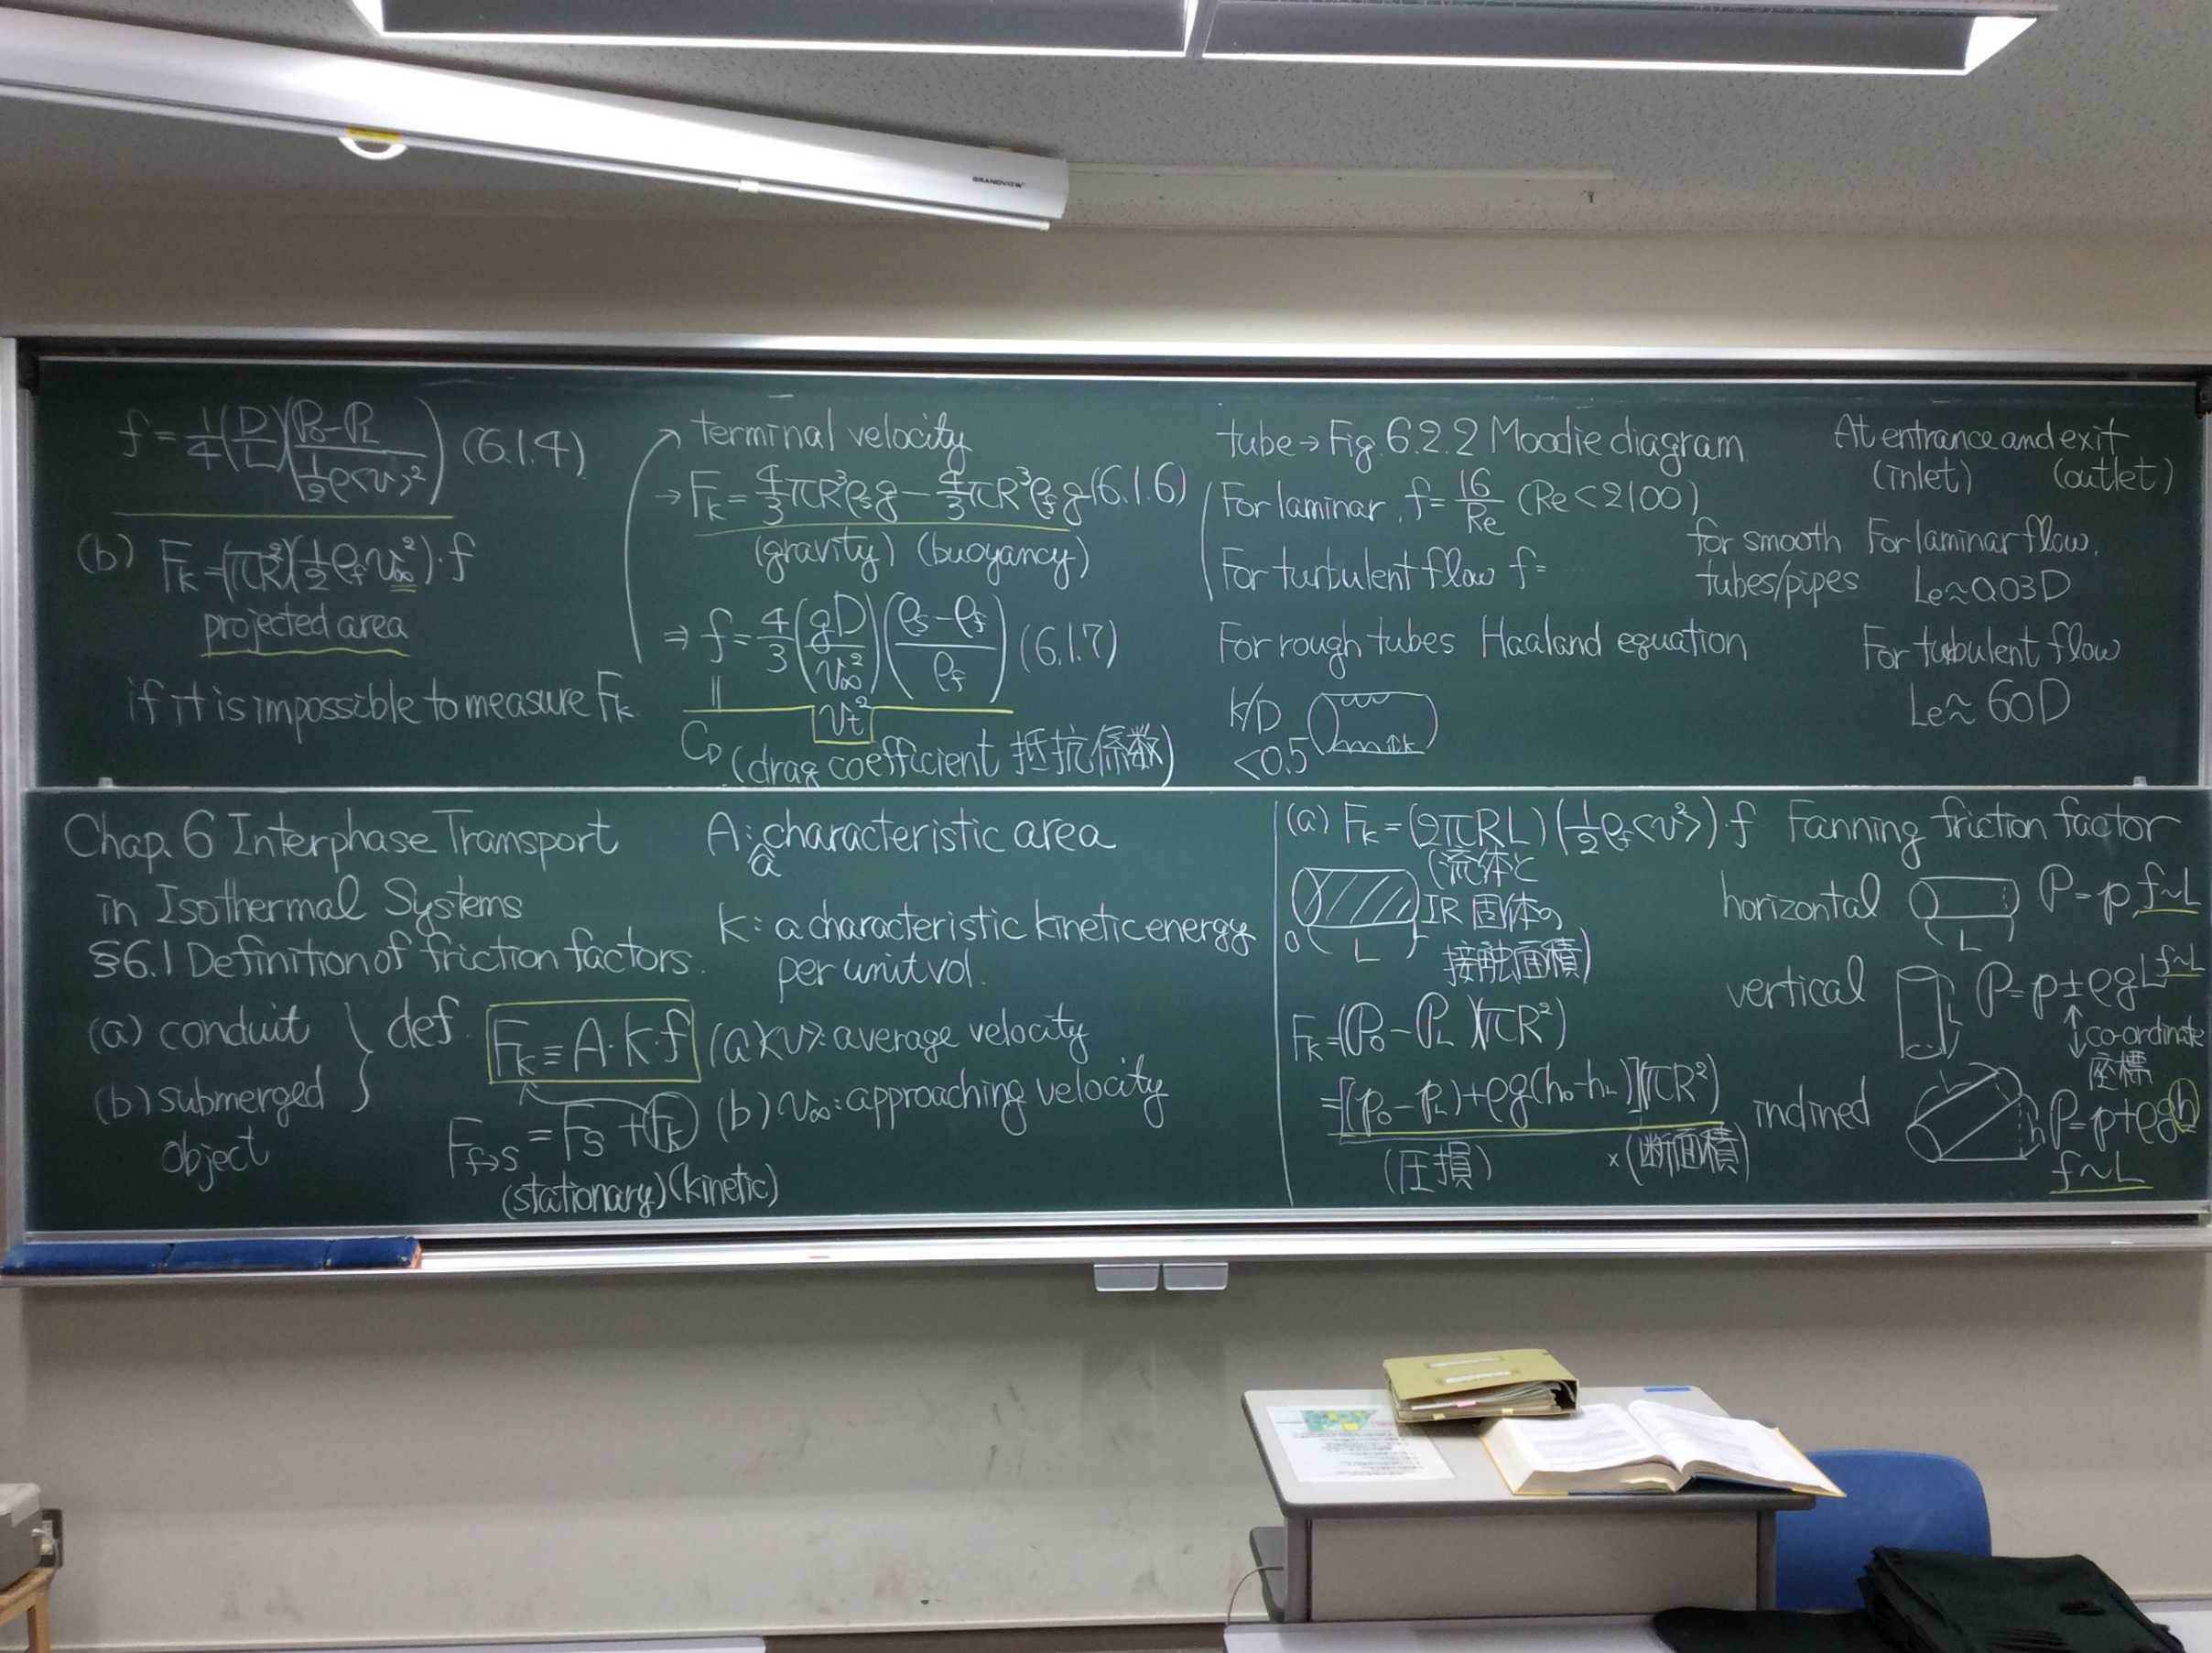 GRANDVIEW
f = 1/4 (D/L)((P0-PL)/(1/2 ρ<v>²)) (6.1.4)
(b) Fk = (πR²)(1/2 ρf v∞²)·f
projected area
if it is impossible to measure Fk
→ terminal velocity
→ Fk = 4/3 πR³ρsg - 4/3 πR³ρfg (6.1.6)
(gravity) (buoyancy)
⇒ f = 4/3 (gD/v∞²)((ρs-ρf)/ρf) (6.1.7)
|| vt²
CD (drag coefficient 抵抗係数)
tube → Fig. 6.2.2 Moodie diagram
For laminar, f = 16/Re (Re<2100)
For turbulent flow f= ...
for smooth
tubes/pipes
For rough tubes Haaland equation
k/D
<0.5
k
At entrance and exit
(inlet) (outlet)
For laminar flow,
Le≈0.03D
For turbulent flow
Le≈60D
Chap. 6 Interphase Transport
in Isothermal Systems
§6.1 Definition of friction factors.
(a) conduit
(b) submerged
object
def.
Fk ≡ A·k·f
Ff→s = Fs + Fk
(stationary) (kinetic)
A: characteristic area
a
k: a characteristic kinetic energy
per unit vol.
(a) <v>: average velocity
(b) v∞: approaching velocity
(a) Fk = (2πRL)(1/2 ρf<v²>)·f Fanning friction factor
(流体と
固体の
接触面積)
R
0 L
Fk = (P0 - PL)(πR²)
= [(p0-pL)+ρg(h0-hL)](πR²)
(圧損) ×(断面積)
horizontal L P=p, f~L
vertical L P=p±ρgL f~L
co-ordinate
座標
inclined L h P=p+ρgh
f~L